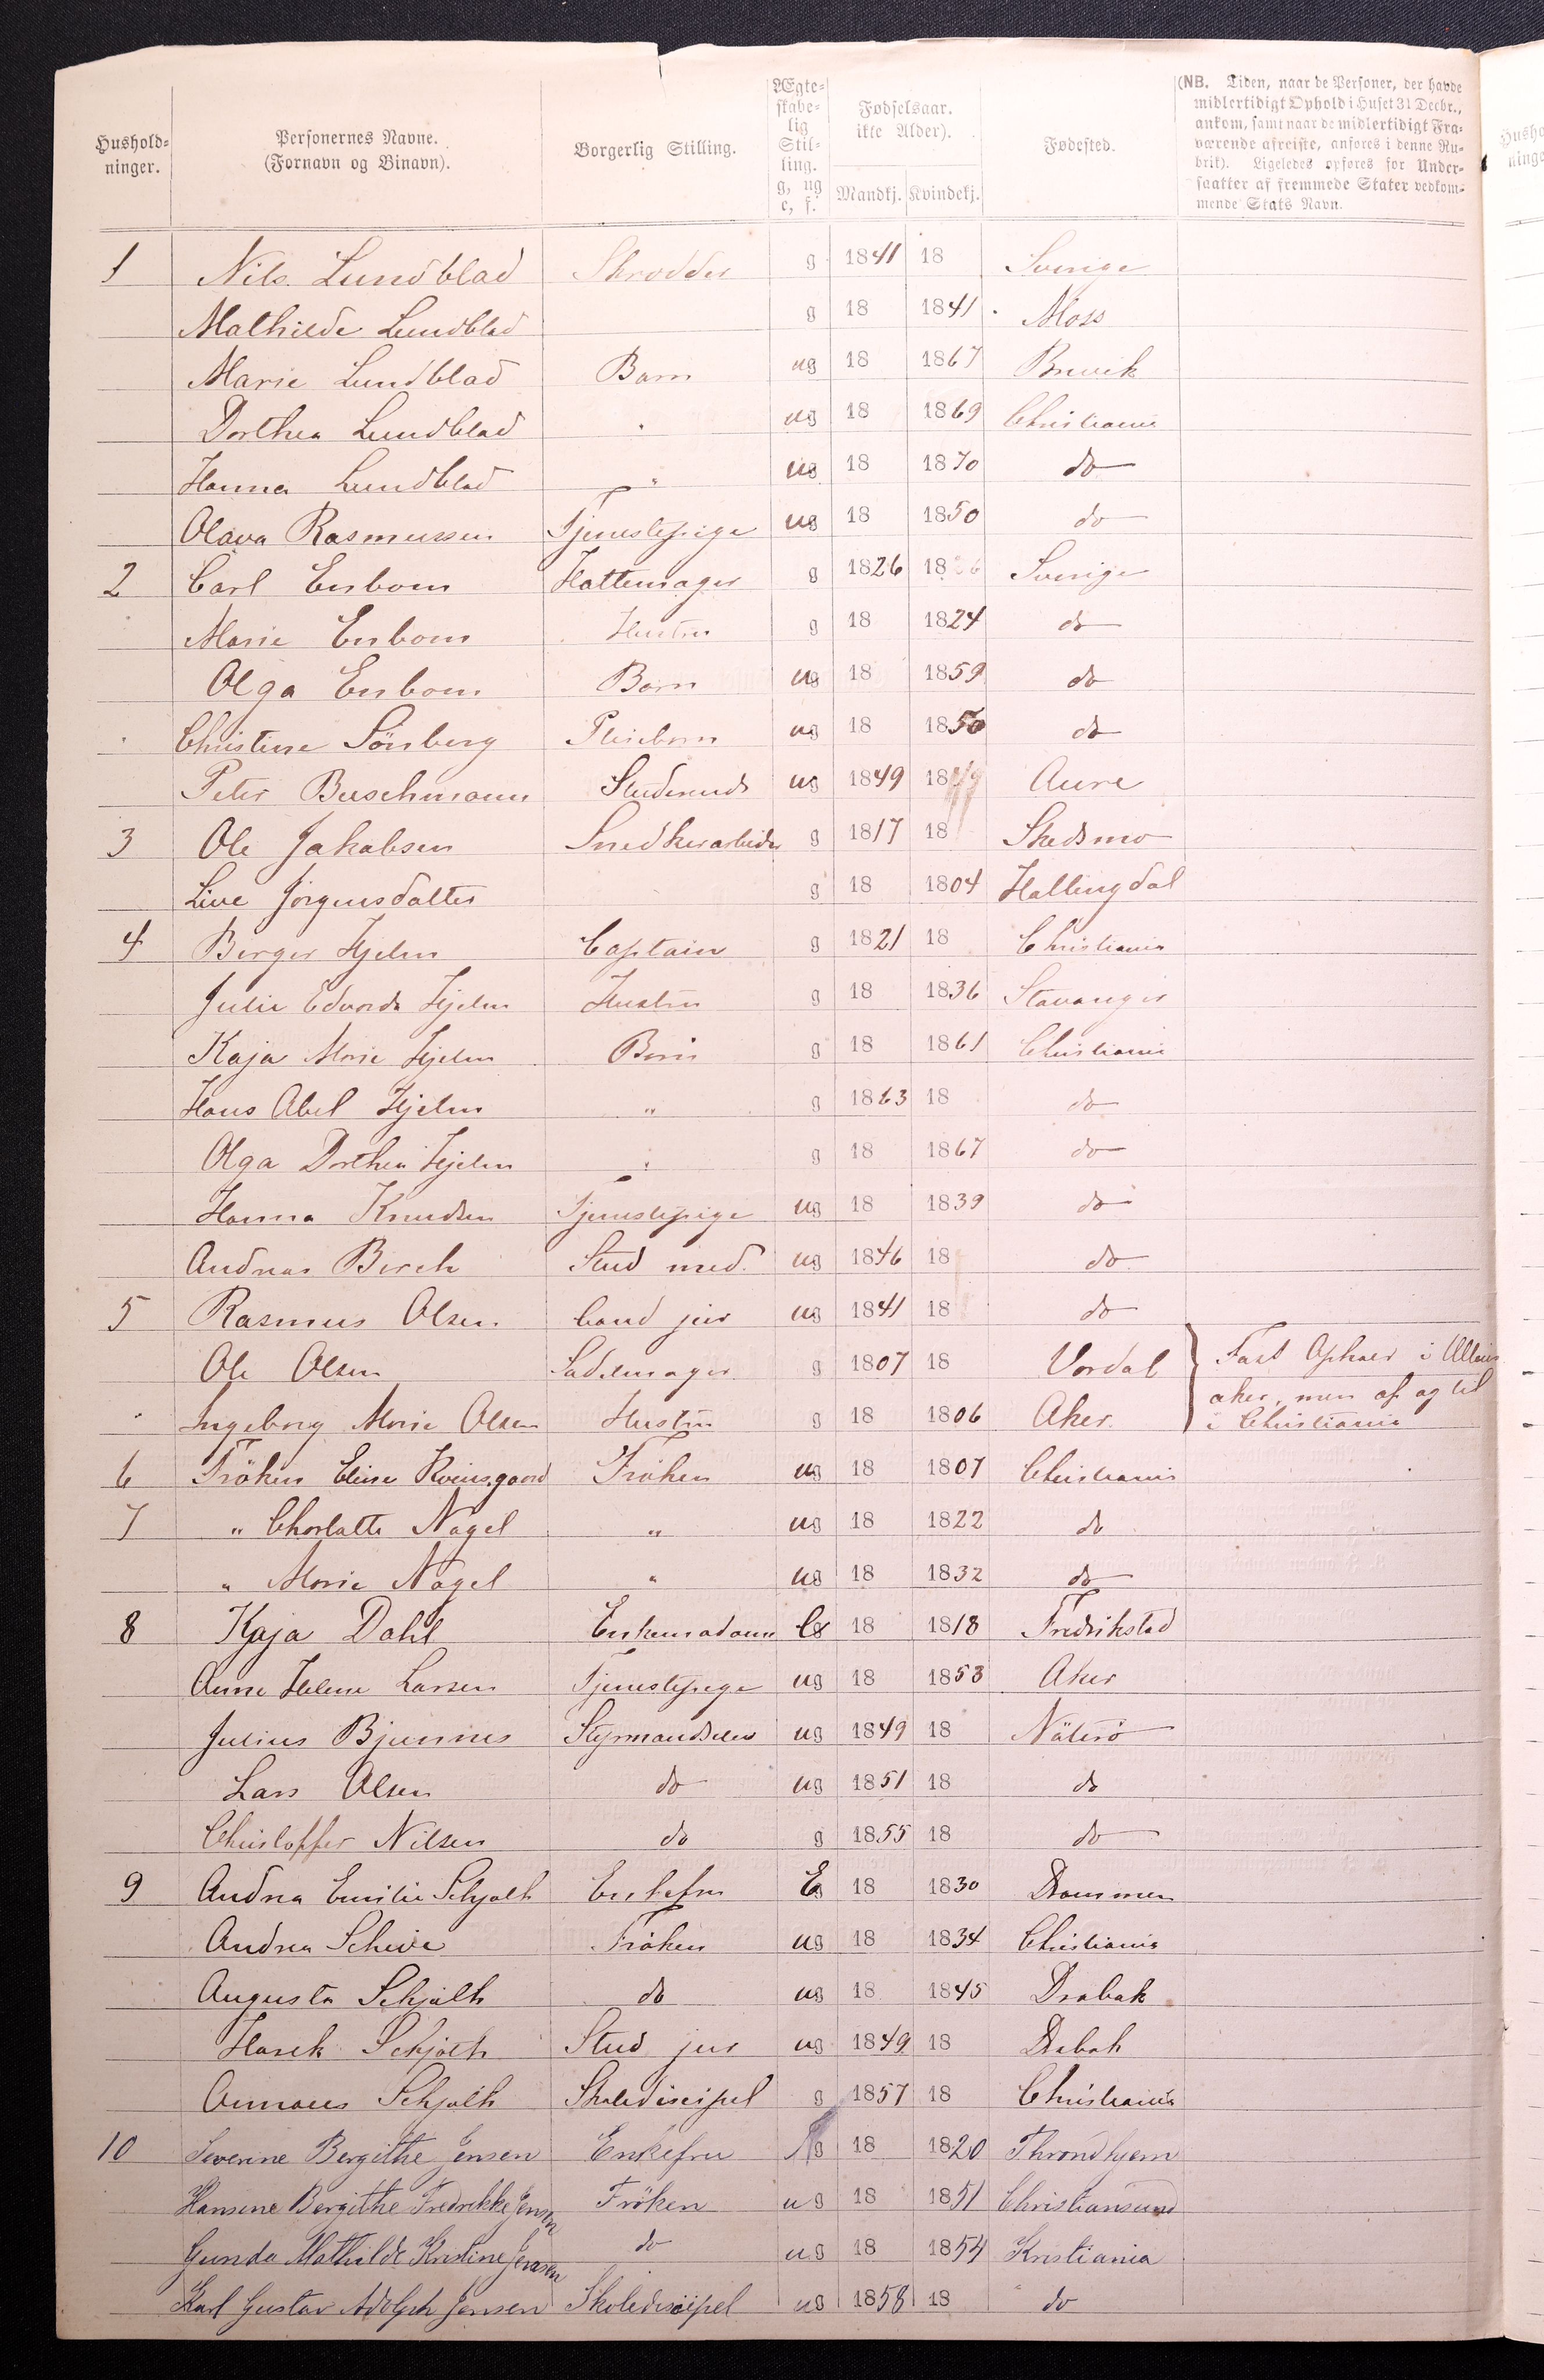 Hushold-
ninger.
Personernes Navne.
(Fornavn og Binavn).
Borgerlig Stilling.
Ægte-
skabe-
lig
Stil-
ling.
g, ug
e, f.
Fødselsaar.
ikke Alder).
Mandkj. Kvindekj.
Fødested.
(NB. Tiden, naar de Personer, der havde
midlertidigt Ophold i Huset 31 Decbr.,
ankom, samt naar de midlertidigt Fra-
værende afreiste, anføres i denne Ru-
brik). Ligeledes opføres for Under-
saatter af fremmede Stater vedkom-
mende Stats Navn.
1 Nils Lundblad Skrædder g 1841 18 Sverige
Mathilde Lundblad g 18 1841 Moss
Marie Lundblad Barn ug 18 1867 Brevik
Dorthea Lundblad " ug 18 1869 Christiania
Hanna Lundblad " ug 18 1870 do
Olava Rasmussen Tjenestepige ug 18 1850 do
2 Carl Enbom Hattemager g 1826 18 Sverige
Marie Enbom Hustru g 18 1824 do
Olga Enbom Barn ug 18 1859 do
Christine Sönberg Pleiebarn ug 18 1850 do
Peter Buschmann Studerende ug 1849 18 Aure
3 Ole Jakobsen Snedkerarbeider g 1817 18 Skedsmo
Live Jörgensdatter g 18 1804 Hallingdal
4 Birger Hjelm Captain g 1821 18 Christiania
Julie Edvarda Hjelm Hustru g 18 1836 Stavanger
Kaja Marie Hjelm Barn g 18 1861 Christiania
Hans Abel Hjelm " g 1863 18 do
Olga Dorthea Hjelm " g 18 1867 do
Hanna Knudsen Tjenestepige ug 18 1839 do
Andreas Birch Stud med. ug 1846 18 do
5 Rasmus Olsen Cand jur ug 1841 18 do
Ole Olsen Sadelmager g 1807 18 Vordal Fast Ophold i Ullens
aker, men af og til
Ingeborg Marie Olsen Hustru g 18 1806 Aker i Christiania
6 Fröken Elise g 18 1807 Christiania
7 " Charlotte Nagel " ug 18 1822 do
" Marie Nagel " ug 18 1832 do
8 Kaja Dahl Enkemadame 18 1818 Fredrikstad
Anne Helene Larsen Tjenestepige ug 18 1853 Aker
Julius Bjønnes Styrmandselev ug 1849 18 Nøterö
Lars Olsen do ug 1851 18 do
Christoffer Nilsen do g 1855 18 do
9 Andrea Emilie Schjøth Enkefru E 18 1830 Drammen
Andrea Scheive Fröken ug 18 1834 Christiania
Augusta Schjøth do ug 18 1845 Drøbak
Schjøth Stud jur ug 1849 18 Drøbak
Schjøth Skolediscipel g 1857 18 Christiania
10 Severine Bergithe Jensen Enkefru g 18 1820 Throndhjem
Hansine Bergithe Fredrikke Jensen Fröken ug 18 1851 Christiansund
Gunda Mathilde Kristine Jensen do ug 18 1854 Kristiania
Karl Gustav Adolph Jensen Skolediscipel ug 1858 18 do